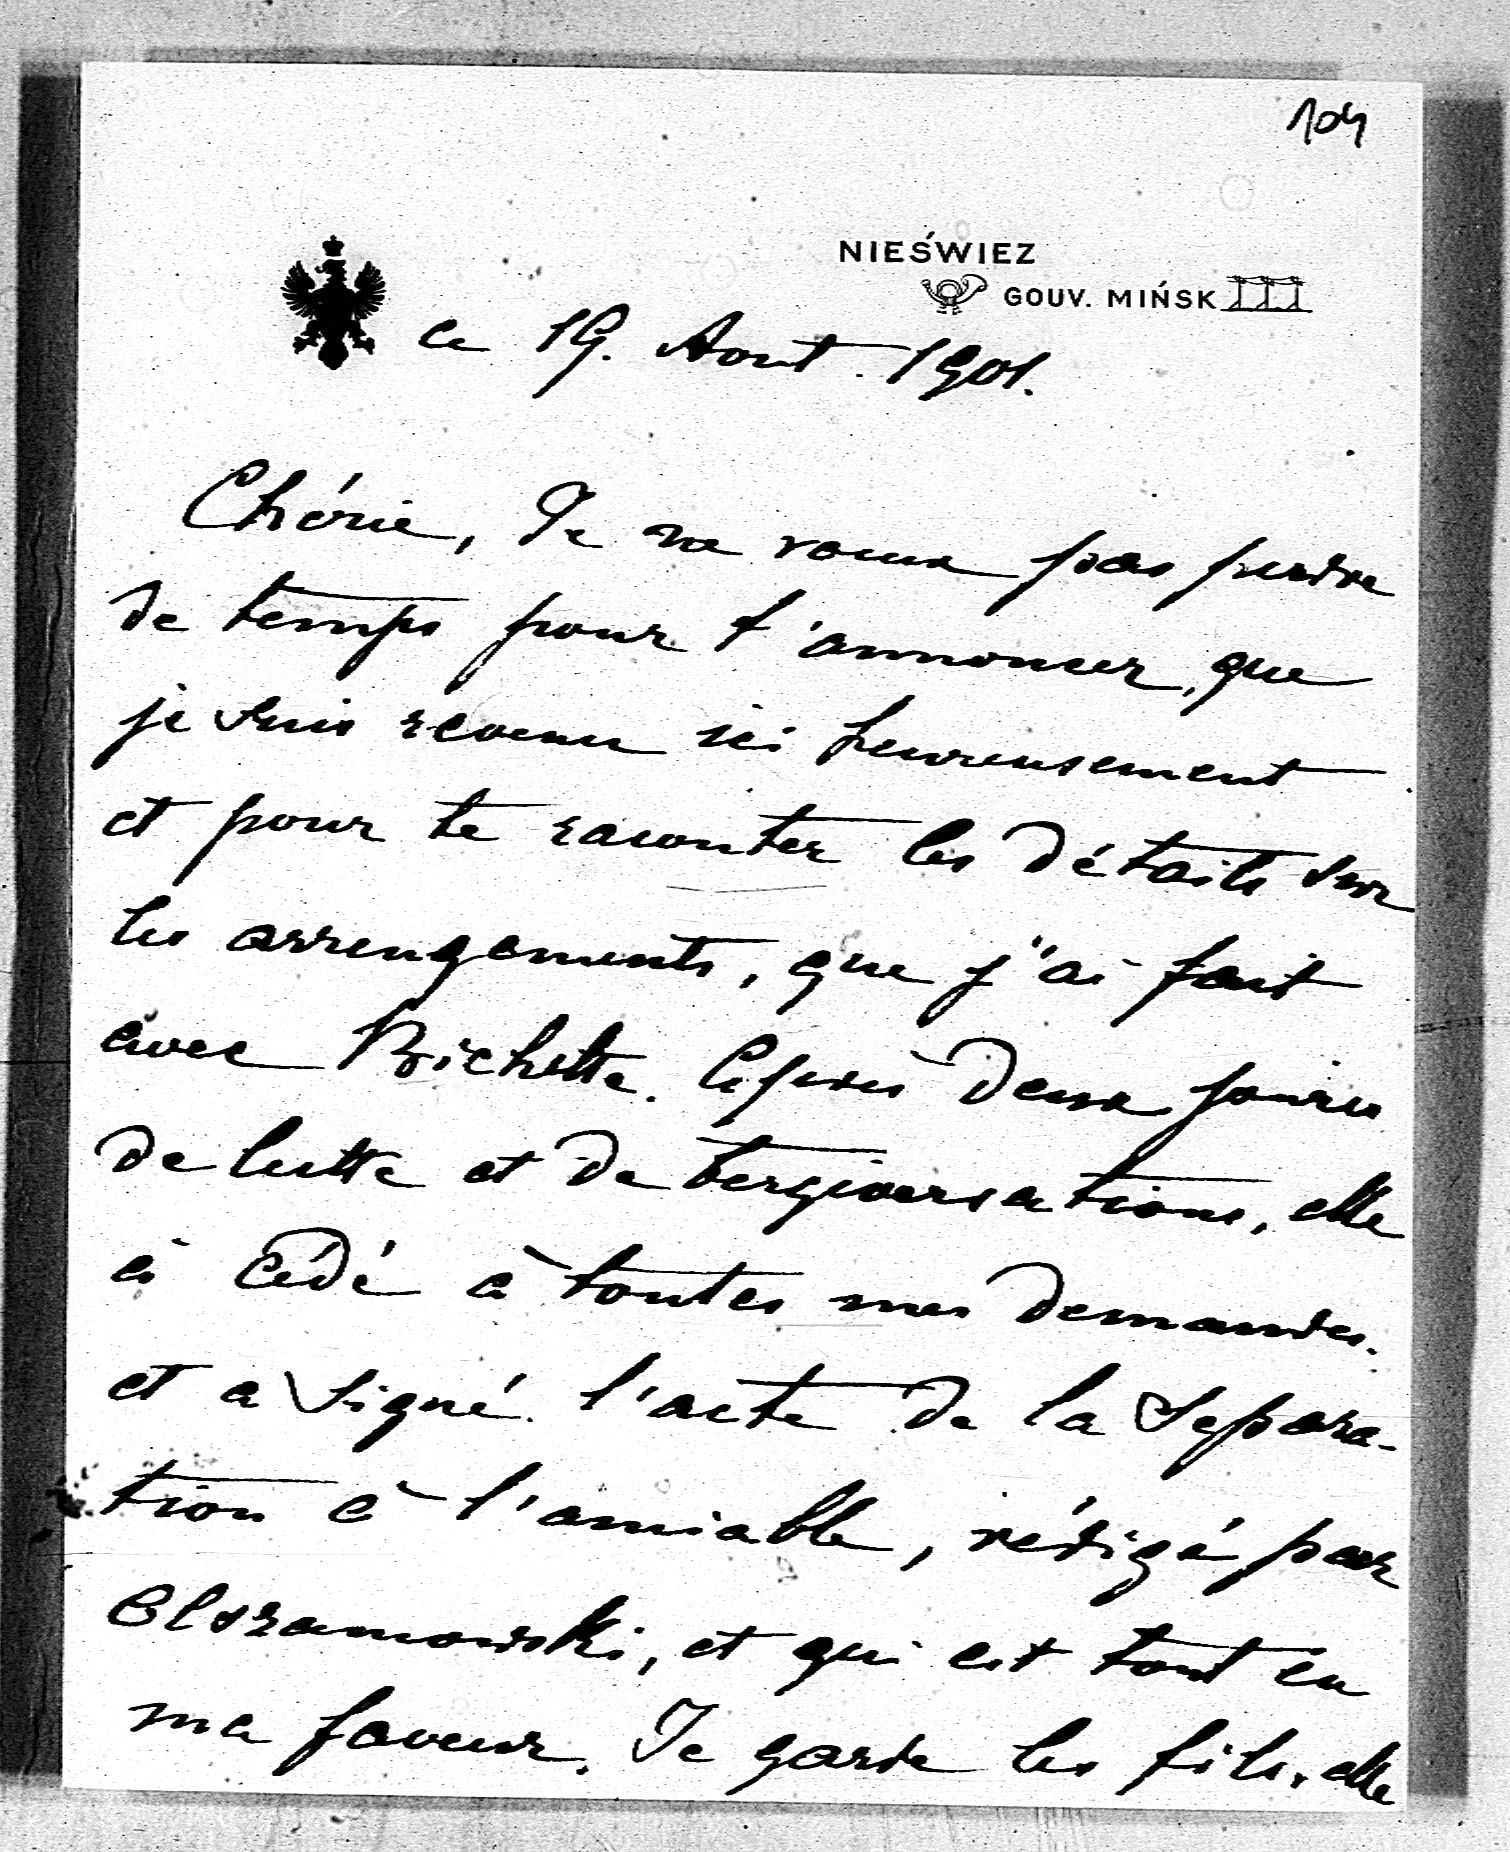 104
NIEŚWIEZ
GOUV. MIŃSK
ce 19. Aout. 1901.
Chérie, Je ne veux pas perdre
de temps pour t'annoncer, que
je suis revenu ici heureusement
et pour te raconter les détails sur
les arrengements, que j'ai fait
avec Bichette. Après deux jours
de lutte et de tergiversations, elle
a cédé à toutes mes demandes.
et a signé l'acte de la Separa-
tion à l'amiable, rédigé par
et qui est tout en
ma faveur. Je garde les fils, elle